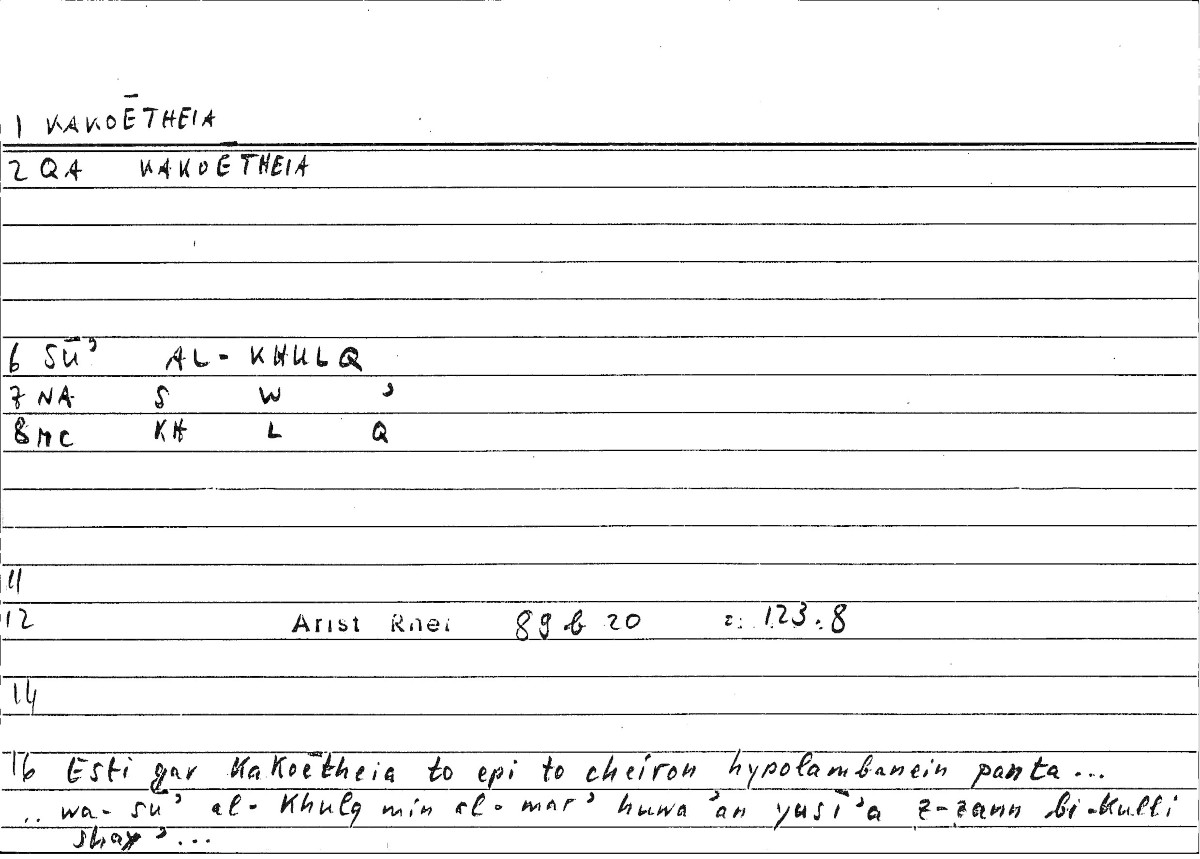 1 KAKOĒTHEIA
2 QA KAKOĒTHEIA
6 SŪʾ AL-KHULQ
7 NA S W ʾ
8 MC KH L Q
11
12 Arist Rhet 89 b 20 123.8
14
16 Esti gar kakoētheia to epi to cheiron hypolambanein panta...
.. wa-sūʾ al-khulq min al-marʾ huwa ʾan yusīʾa z-zann bi-kulli
shayʾ...